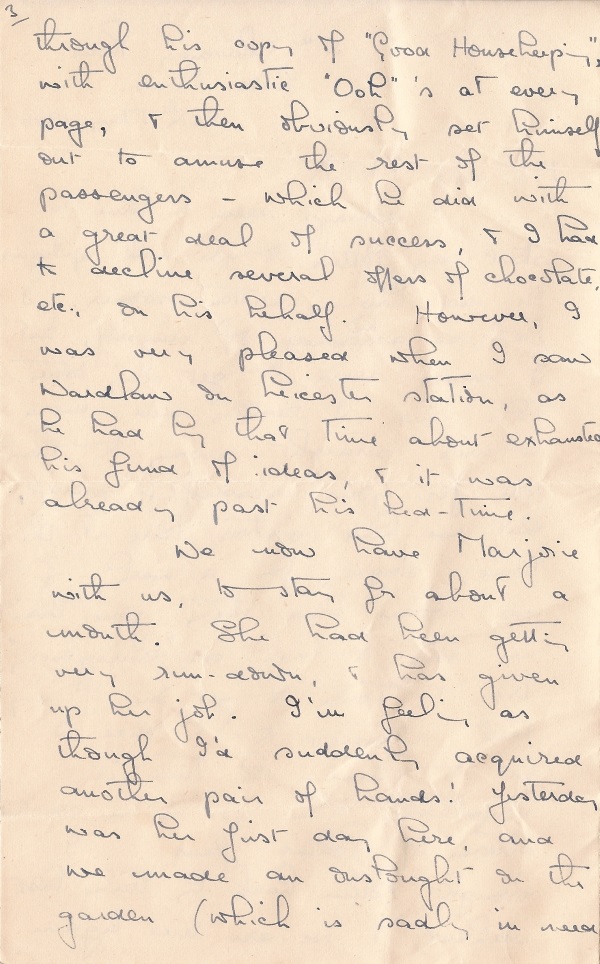 3/
through his copy of "Good Housekeeping",
with enthusiastic "Ooh" 's at every
page, & then obviously set himself
out to amuse the rest of the
passengers – which he did with
a great deal of success, & I had
to decline several offers of chocolate,
etc., on his behalf. However, I
was very pleased when I saw
Wardlaw on Leicester station, as
he had by that time about exhausted
his fund of ideas, & it was
already past his bed-time.
We now have Marjorie
with us, to stay for about a
month. She had been getting
very run-down, & has given
up her job. I'm feeling as
though I'd suddenly acquired
another pair of hands! Yesterday
was her first day here, and
we made an onslaught on the
garden (which is sadly in need